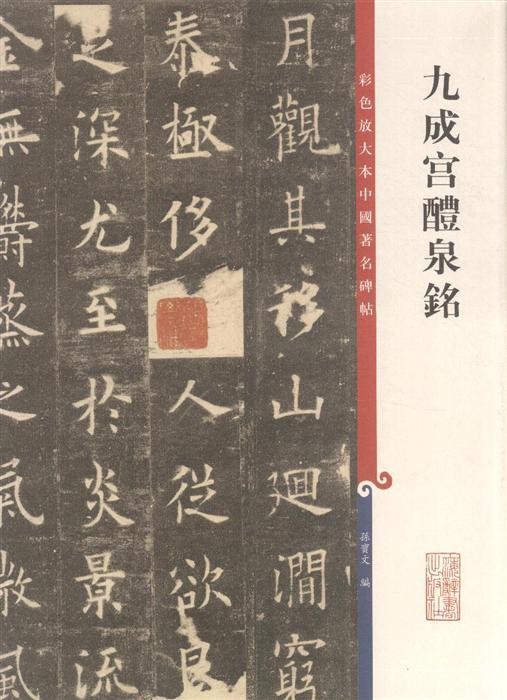 九成宫醴泉銘
彩色放大本中國著名碑帖
孫寶文 編
月觀其移山廻澗窮
泰極侈
人從欲良
足深尤至於炎景流
金無鬱蒸之氣微風